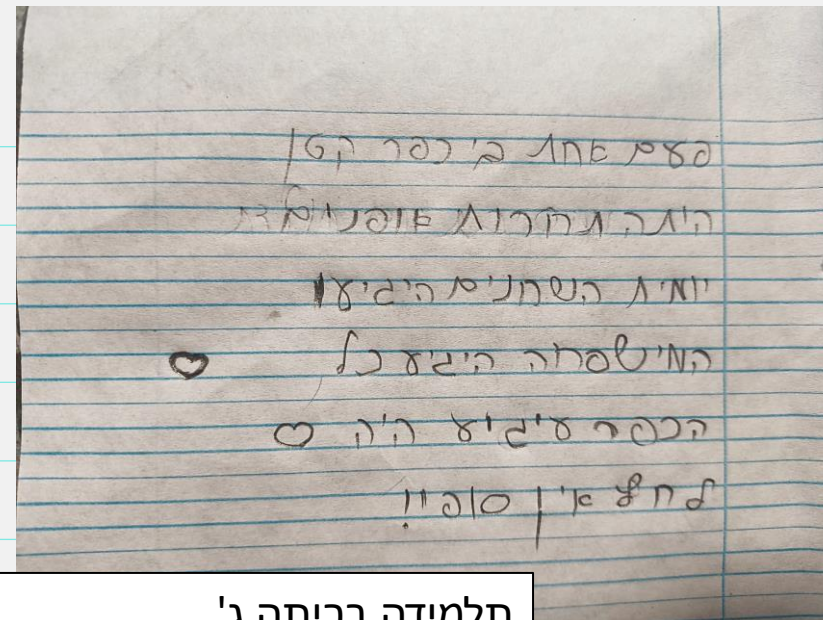 פעם אחת בי כפר קטן
היתה תחרות אופניים
יומית השחנים היגיעו
המישפחה היגיע כל
הכפר עיגיע היה
לחץ אין סופיי!
תלמידה בכיתה ג'